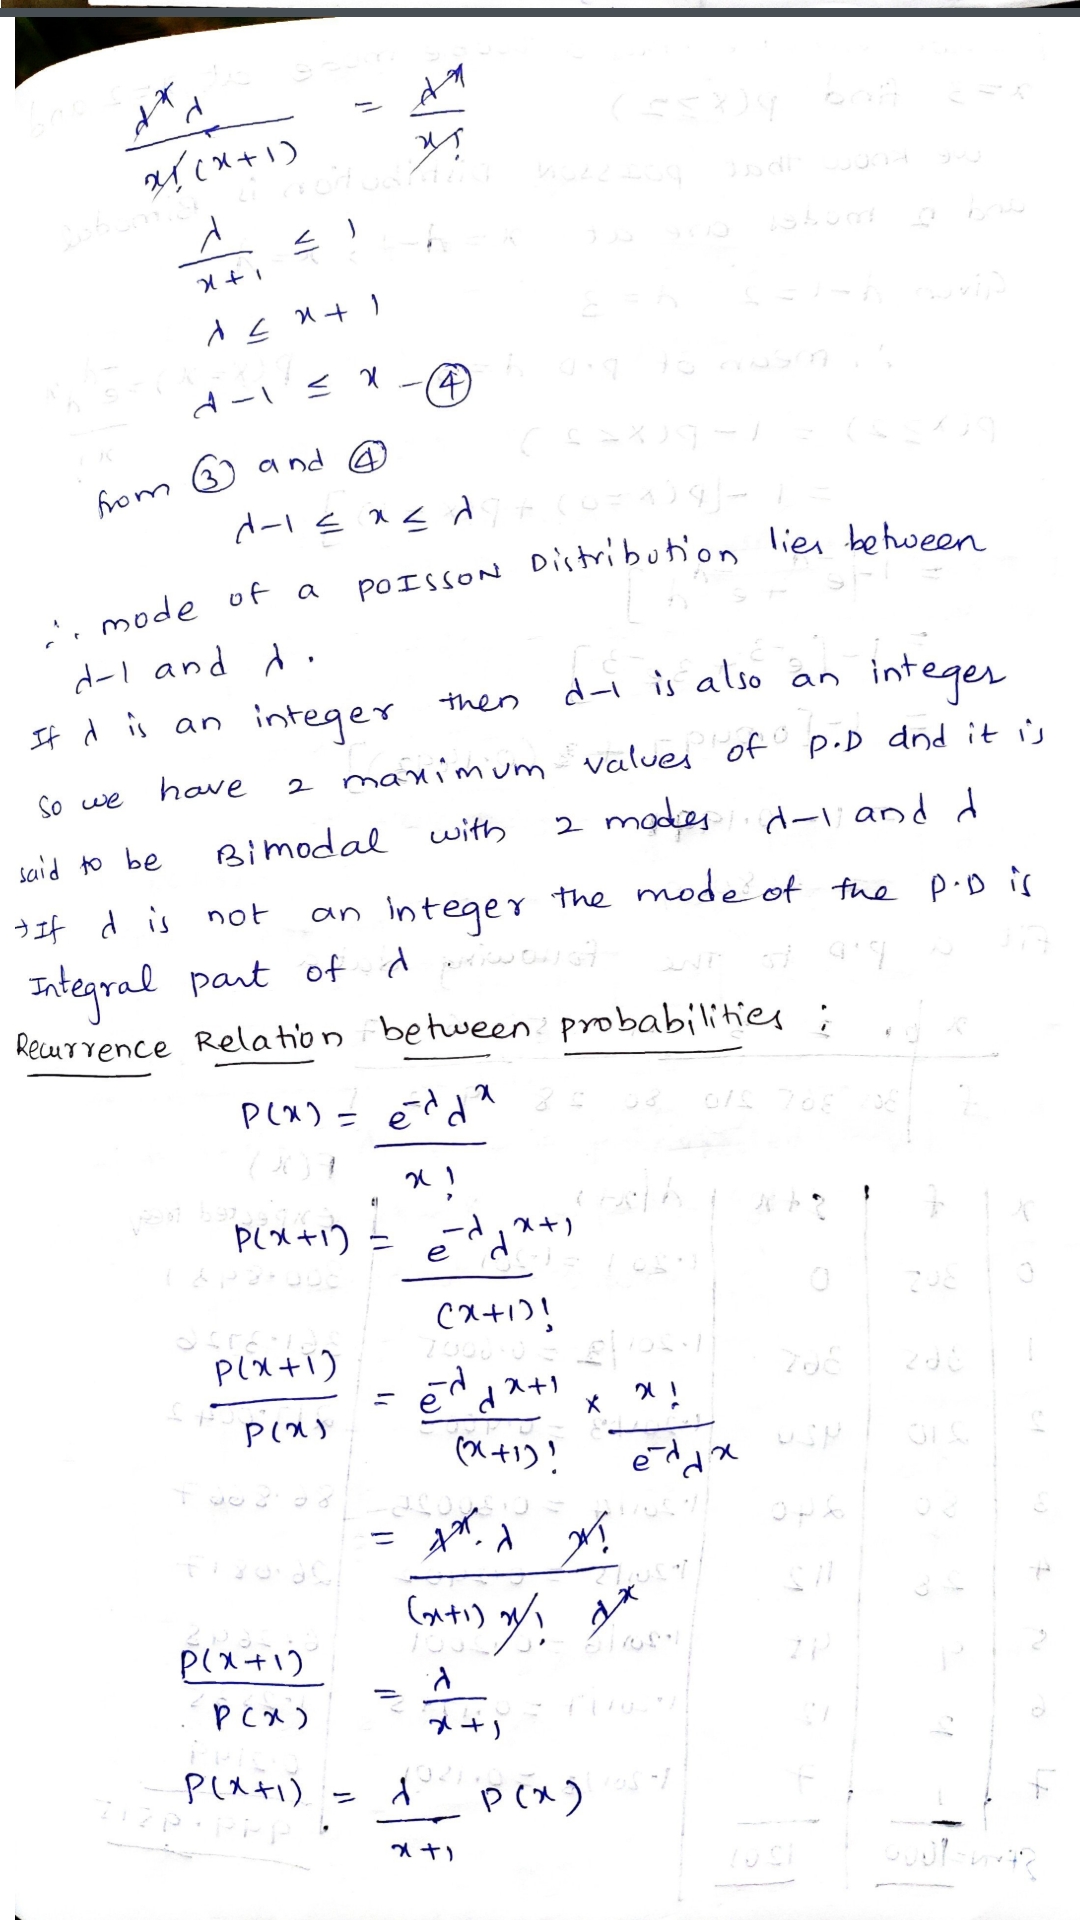 λ^x λ / x! (x+1) = λ^x / x!
λ / x+1 ≤ 1
λ ≤ x + 1
λ-1 ≤ x - ④
from ③ and ④
λ-1 ≤ x ≤ λ
∴ mode of a POISSON Distribution lies between
λ-1 and λ.
If λ is an integer then λ-1 is also an integer
So we have 2 maximum values of P.D and it is
said to be Bimodal with 2 modes λ-1 and λ
→If λ is not an integer the mode of the P.D is
Integral part of λ.
Recurrence Relation between probabilities :
P(x) = e^-λ λ^x / x!
P(x+1) = e^-λ λ^x+1 / (x+1)!
P(x+1) / P(x) = e^-λ λ^x+1 / (x+1)! × x! / e^-λ λ^x
= λ^x. λ x! / (x+1) x! λ^x
P(x+1) / P(x) = λ / x+1
P(x+1) = λ / x+1 P(x)